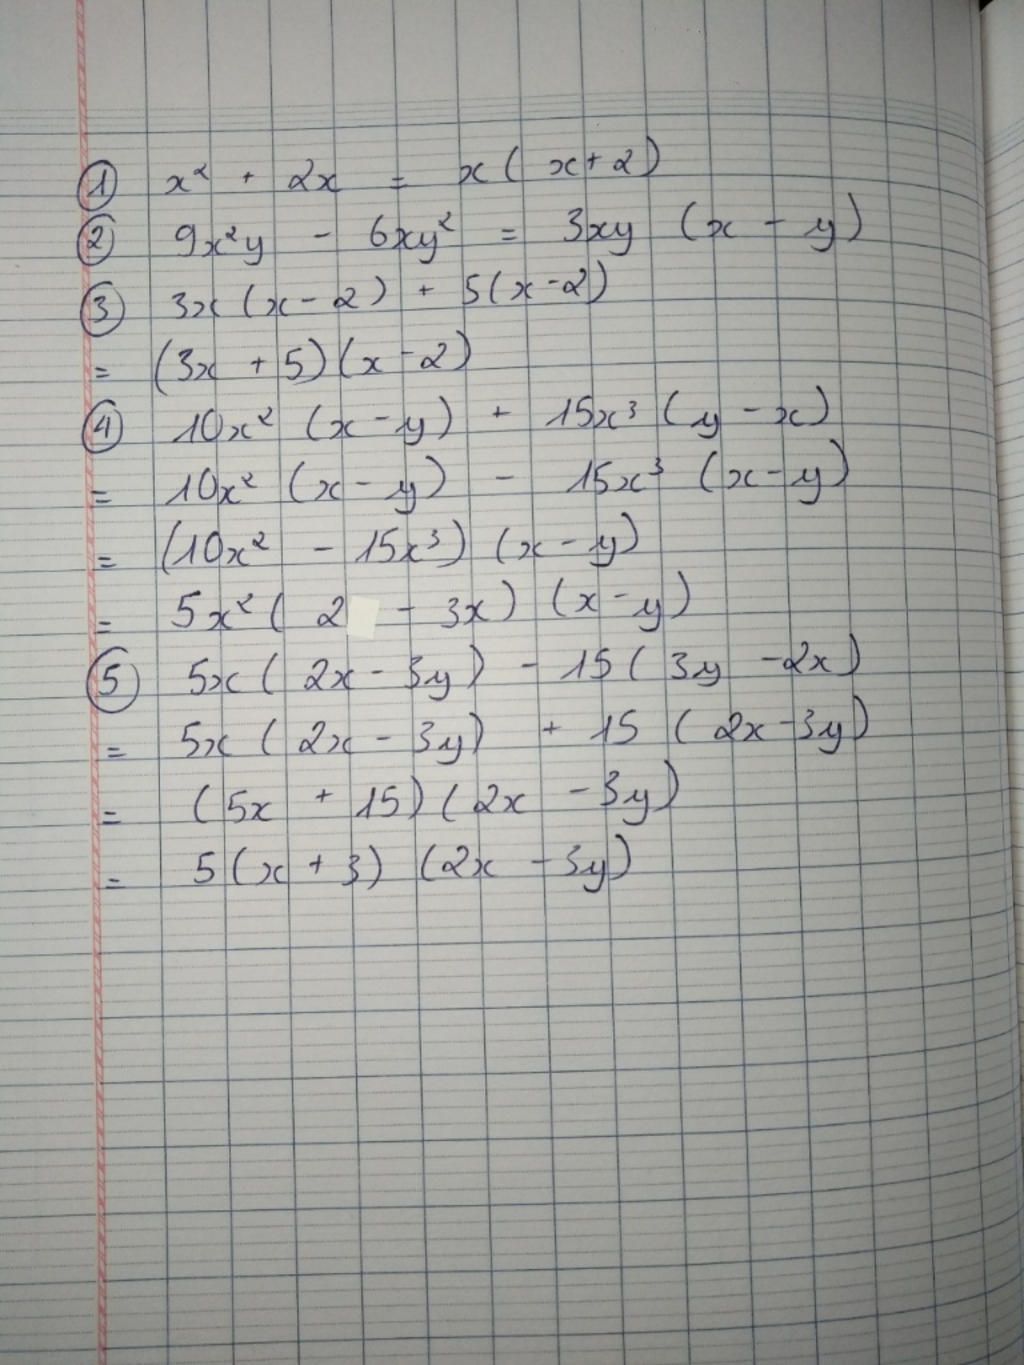 ① x² + 2x = x( x+2)
② 9x²y - 6xy² = 3xy (x - y)
③ 3x(x-2) + 5(x-2)
= (3x + 5)(x-2)
④ 10x² (x-y) + 15x³ (y - x)
= 10x² (x-y) - 15x³ (x-y)
= (10x² - 15x³) (x-y)
= 5x²( 2 - 3x) (x-y)
⑤ 5x( 2x-3y) - 15( 3y -2x)
= 5x ( 2x-3y) + 15 ( 2x-3y)
= (5x + 15)(2x - 3y)
= 5(x+3) (2x - 3y)